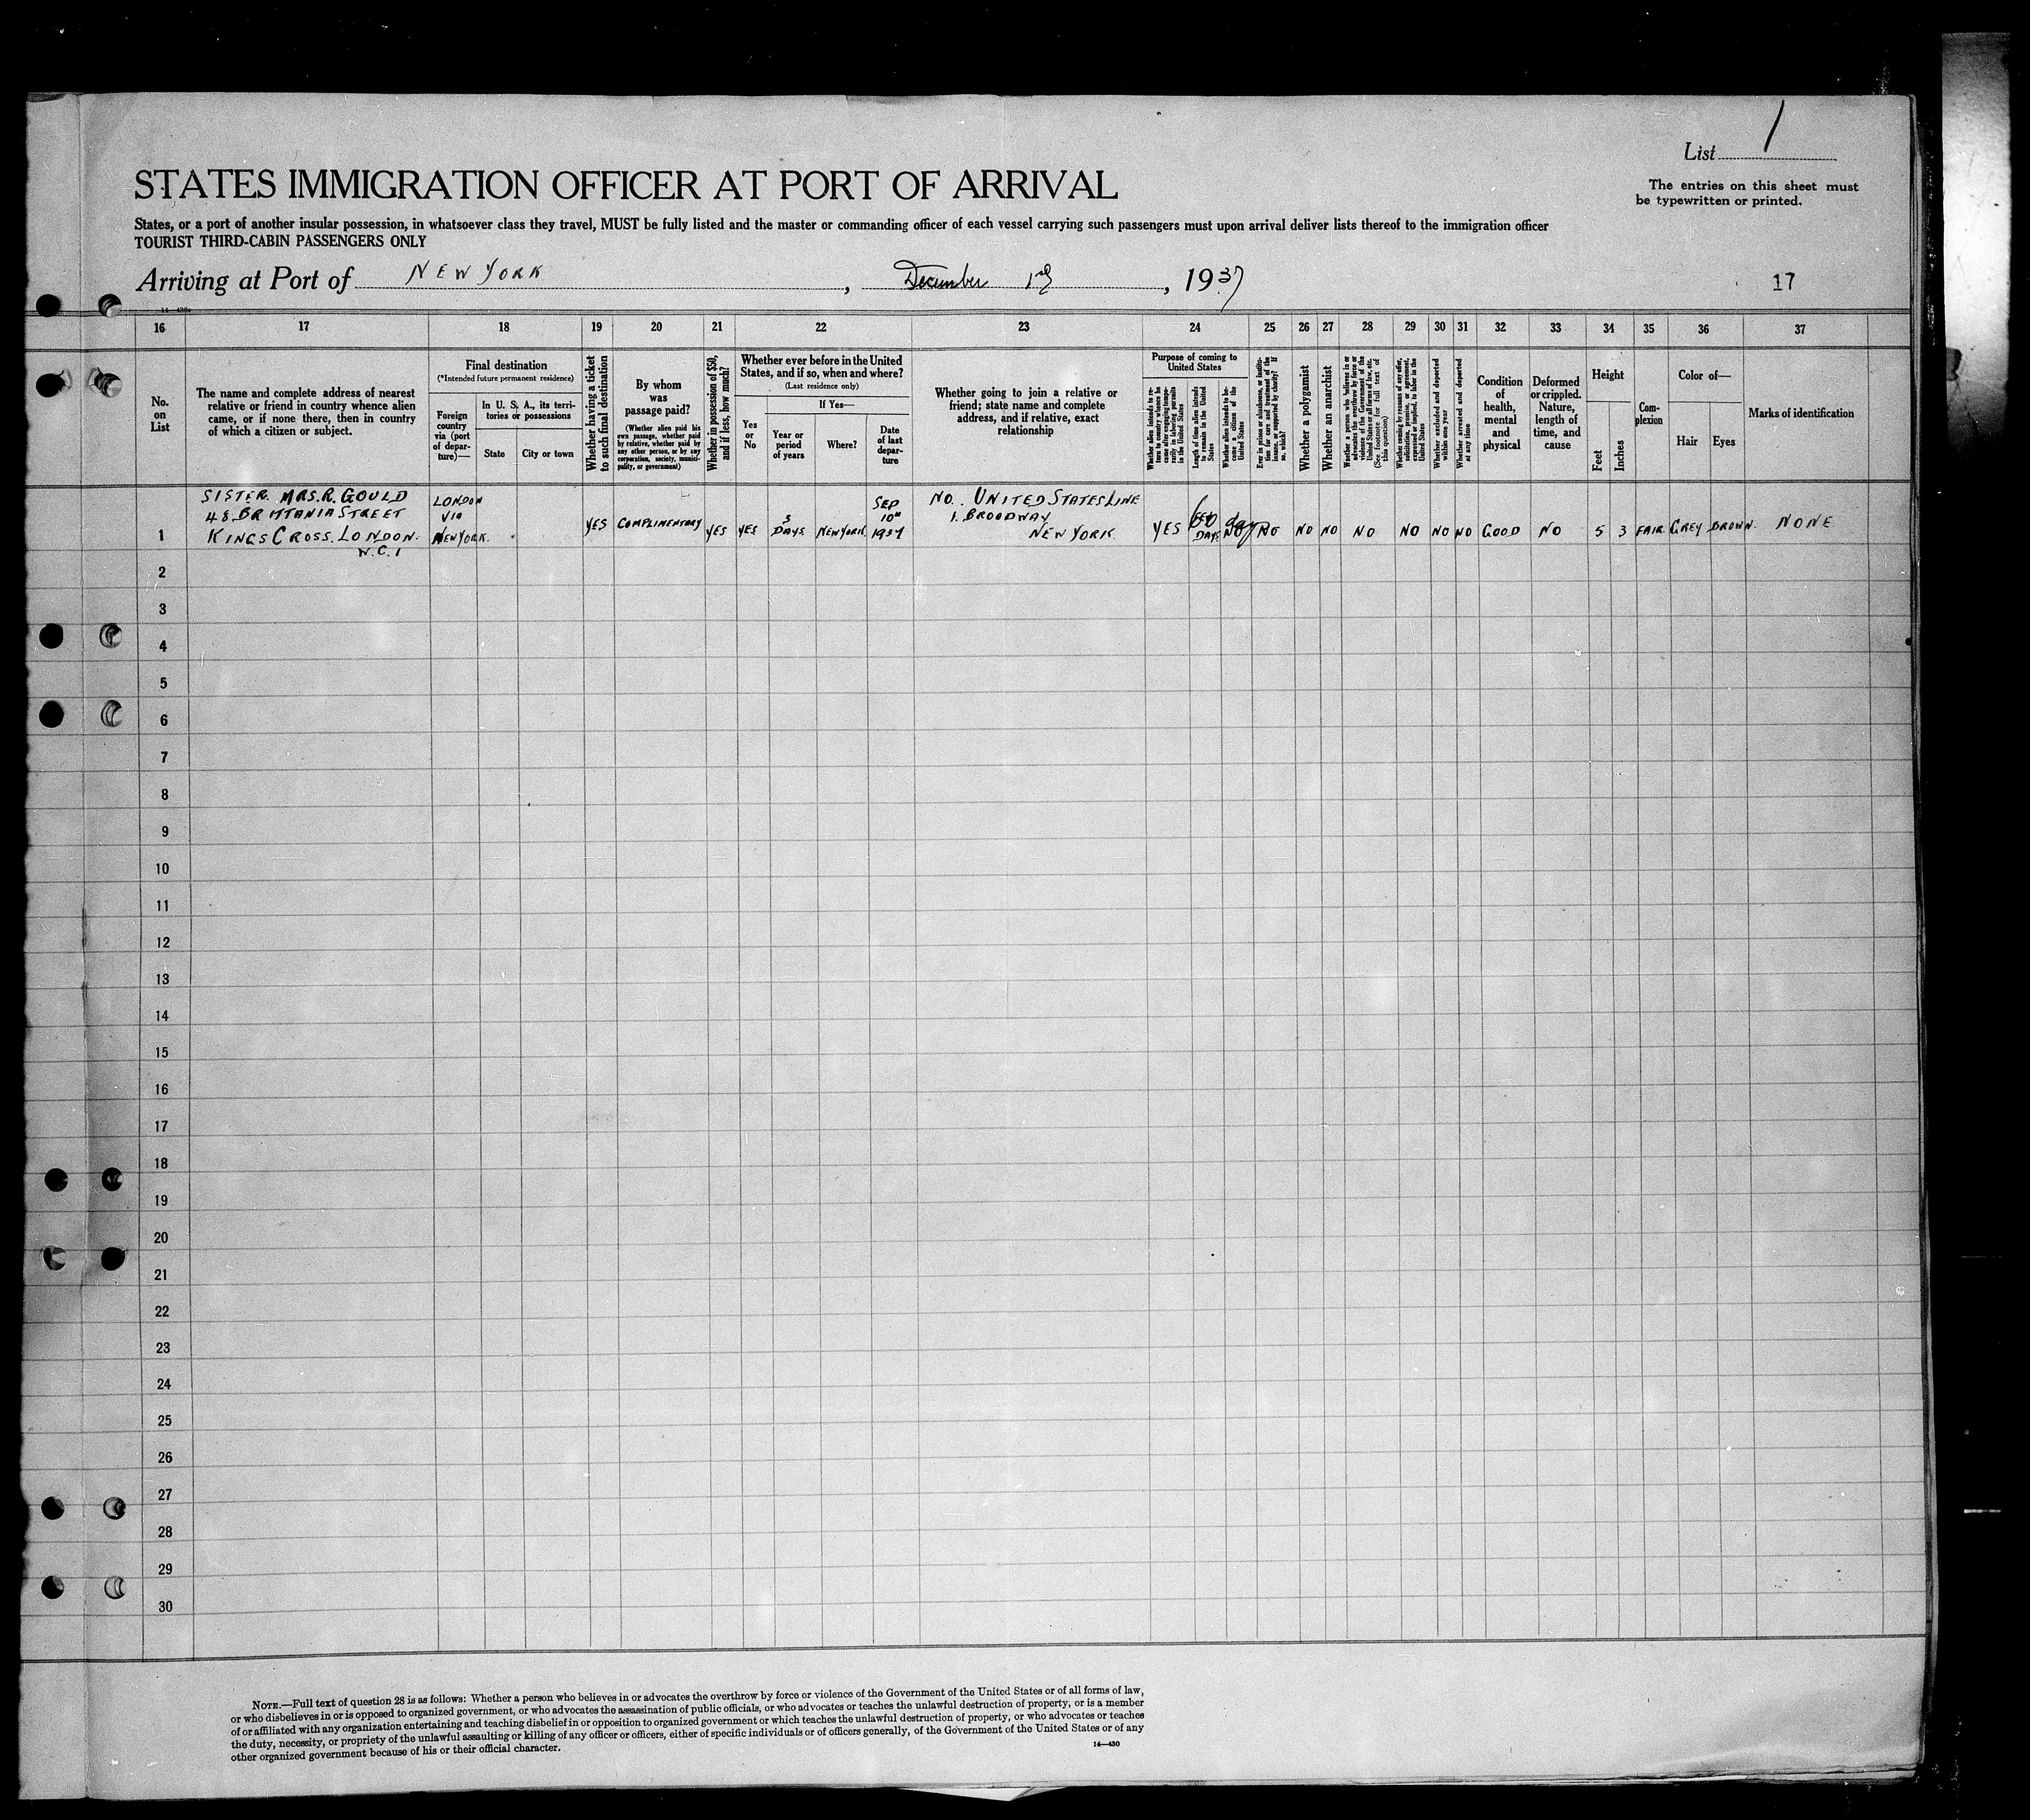 List 1
STATES IMMIGRATION OFFICER AT PORT OF ARRIVAL
The entries on this sheet must
be typewritten or printed.
States, or a port of another insular possession, in whatsoever class they travel, MUST be fully listed and the master or commanding officer of each vessel carrying such passengers must upon arrival deliver lists thereof to the immigration officer
TOURIST THIRD-CABIN PASSENGERS ONLY
Arriving at Port of NEW YORK, December, 1937
17
16 17 18 19 20 21 22 23 24 25 26 27 28 29 30 31 32 33 34 35 36 37
No.
on
List
The name and complete address of nearest
relative or friend in country whence alien
came, or if none there, then in country
of which a citizen or subject.
Final destination
(*Intended future permanent residence)
Foreign
country
via (port
of depar-
ture)—
In U. S. A., its terri-
tories or possessions
State
City or town
Whether having a ticket
to such final destination
By whom
was
passage paid?
(Whether alien paid his
own passage, whether paid
by relative, whether paid by
any other person, or by any
corporation, society, munici-
pality, or government)
Whether in possession of $50,
and if less, how much?
Whether ever before in the United
States, and if so, when and where?
(Last residence only)
Yes
or
No
If Yes—
Year or
period
of years
Where?
Date
of last
depar-
ture
Whether going to join a relative or
friend; state name and complete
address, and if relative, exact
relationship
Purpose of coming to
United States
Whether alien intends to re-
turn to country whence he
came after engaging tempo-
rarily in laboring pursuits
in the United States
Length of time alien intends
to remain in the United
States
Whether alien intends to be-
come a citizen of the
United States
Ever in prison or almshouse, or institu-
tion for care and treatment of the
insane, or supported by charity? If
so, which?
Whether a polygamist
Whether an anarchist
Whether a person who believes in or
advocates the overthrow by force or
violence of the Government of the
United States or all forms of law, etc.
(See footnote for full text of
this question)
Whether coming by reason of any offer,
solicitation, promise, or agreement,
expressed or implied, to labor in the
United States
Whether excluded and deported
within one year
Whether arrested and deported
at any time
Condition
of
health,
mental
and
physical
Deformed
or crippled.
Nature,
length of
time, and
cause
Height
Feet
Inches
Com-
plexion
Color of—
Hair
Eyes
Marks of identification
1
SISTER. MRS. R. GOULD
48 BRITTANIA STREET
KINGS CROSS. LONDON.
W.C.1
LONDON
VIA
NEW YORK.
YES
COMPLIMENTARY
YES
YES
3
DAYS
NEW YORK
SEP
10th
1937
NO. UNITED STATES LINE
1. BROODWAY
NEW YORK
YES
DAYS
NO
NO
NO
NO
NO
NO
NO
NO
GOOD
NO
5
3
FAIR
GREY
BROWN
NONE
2
3
4
5
6
7
8
9
10
11
12
13
14
15
16
17
18
19
20
21
22
23
24
25
26
27
28
29
30
NOTE.—Full text of question 28 is as follows: Whether a person who believes in or advocates the overthrow by force or violence of the Government of the United States or of all forms of law,
or who disbelieves in or is opposed to organized government, or who advocates the assassination of public officials, or who advocates or teaches the unlawful destruction of property, or is a member
of or affiliated with any organization entertaining and teaching disbelief in or opposition to organized government or which teaches the unlawful destruction of property, or who advocates or teaches
the duty, necessity, or propriety of the unlawful assaulting or killing of any officer or officers, either of specific individuals or of officers generally, of the Government of the United States or of any
other organized government because of his or their official character.
14—430